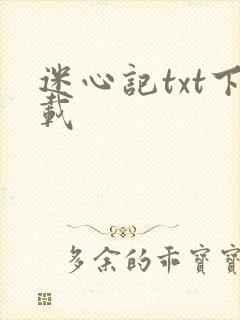 迷心記txt下
載
多余的乖寶寶